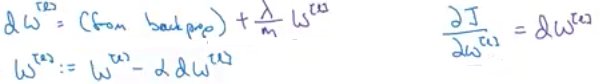 dW^[l] = (from backprop) + λ/m W^[l]
∂J/∂W^[l] = dW^[l]
W^[l] := W^[l] - α dW^[l]